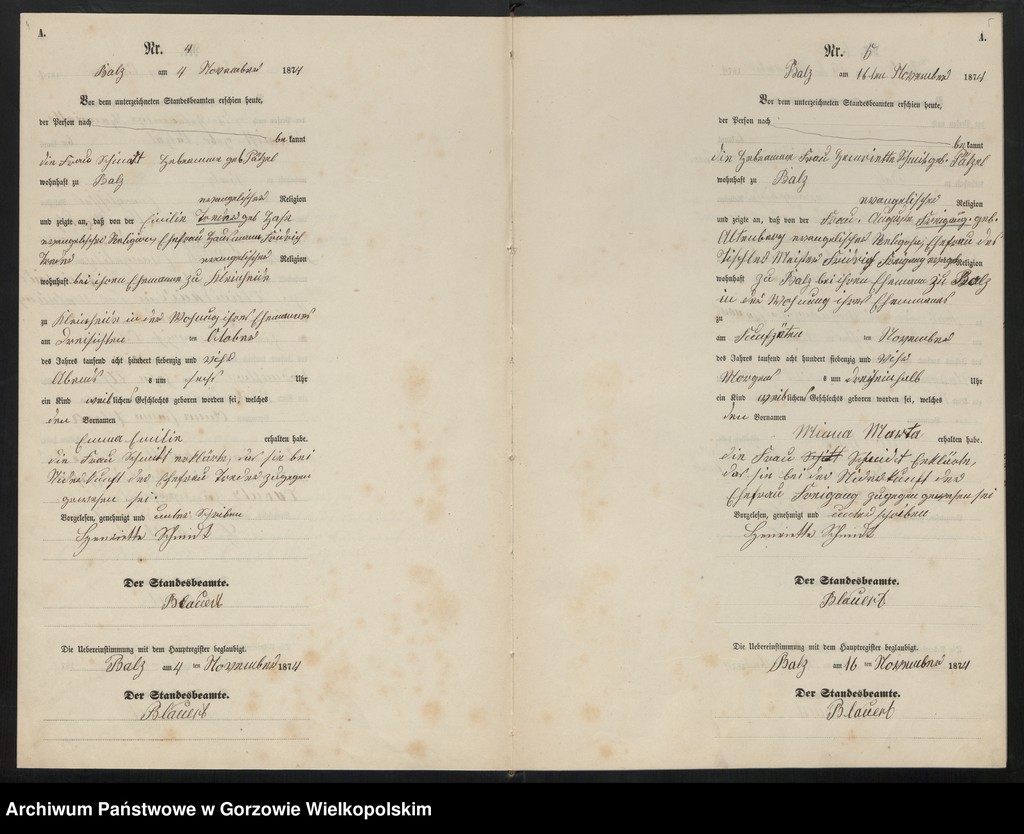 A.
Nr. 4
Balz am 4 November 1874
Vor dem unterzeichneten Standesbeamten erschien heute,
der Person nach
bekannt
die Frau Schmidt Hebeamme geb Pätzel
wohnhaft zu Balz
evangelischer Religion
und zeigte an, daß von der Emilie geb Hase
evangelischer Religion, Ehefrau Friedrich
evangelischer Religion
wohnhaft bei ihren Ehemanne zu Kleinheide
zu Kleinheide in der Wohnung ihres Ehemannes
am Dreisichten ten October
des Jahres tausend acht hundert siebenzig und vier
Abends s um sechs Uhr
ein Kind weiblichen Geschlechts geboren worden sei, welches
den Vornamen
Emma Emilie erhalten habe.
die Frau Schmidt erklärte, das sie bei
Niderkunft der Ehefrau zugegen
gewesen sei.
Vorgelesen, genehmigt und unter Schriben
Henriette Schmidt
Der Standesbeamte.
Blauert
Die Uebereinstimmung mit dem Hauptregister beglaubigt.
Balz am 4 ten November 1874
Der Standesbeamte.
Blauert
A.
Nr. 5
Balz am 16ten November 1874
Vor dem unterzeichneten Standesbeamten erschien heute,
der Person nach
bekannt
die Hebeamme Frau Henriette geb. Pätzel
wohnhaft zu Balz
evangelischer Religion
und zeigte an, daß von der Frau. Auguste Freigang. geb.
Altenberg evangelischer Religion, Ehefrau des
Tischler Meister Freigang Religion
wohnhaft zu Balz bei ihren Ehemann zu Balz
in der Wohnung ihres Ehemannes
zu
am Funfzäten ten November
des Jahres tausend acht hundert siebenzig und vier
Morgens s um Uhr
ein Kind weiblichen Geschlechts geboren worden sei, welches
den Vornamen
Marta erhalten habe.
die Frau Schmidt Erklärte,
das sie bei der Niderkunft der
Ehefrau Freigang zugegen gewesen sei
Vorgelesen, genehmigt und unterschriben
Henriette Schmidt
Der Standesbeamte.
Blauert
Die Uebereinstimmung mit dem Hauptregister beglaubigt.
Balz am 16 ten November 1874
Der Standesbeamte.
Blauert
Archiwum Państwowe w Gorzowie Wielkopolskim